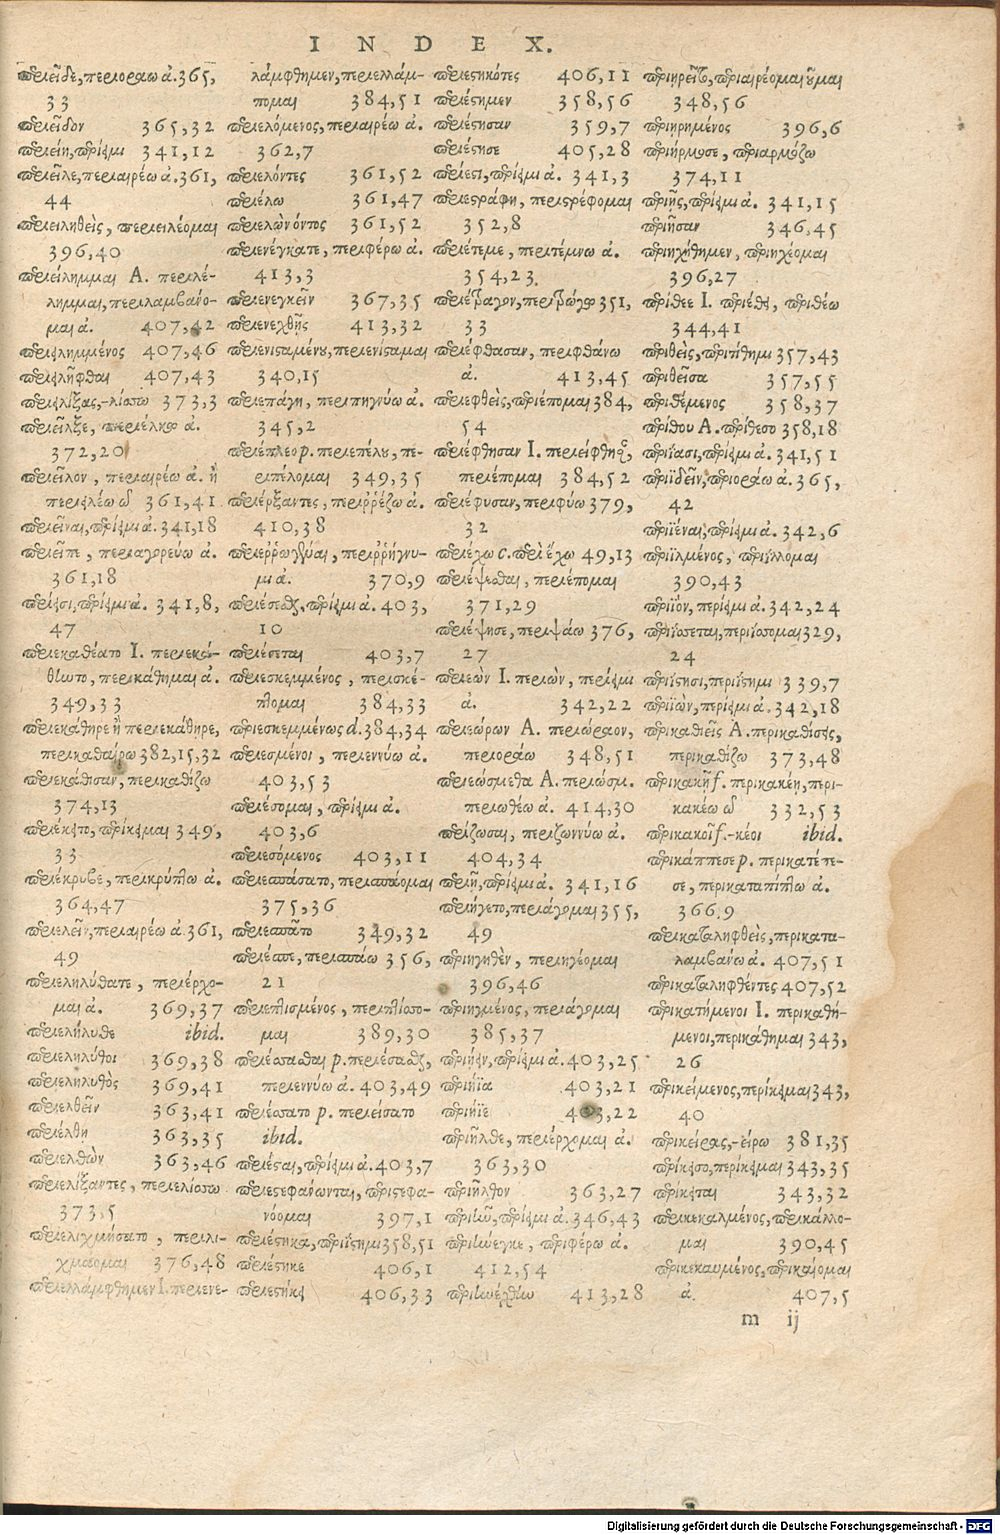 INDEX.
περιεῖδε, περιοράω ἀ. 365,
33
περιεῖδον 365,32
περιείη, περίειμι 341,12
περιεῖλε, περιαιρέω ἀ. 361,
44
περιειληθεὶς, περιειλέομαι
396,40
περιείλημμαι A. περιλέ-
λημμαι, περιλαμβάνο-
μαι ἀ. 407,42
περιειλημμένος 407,46
περιειλῆφθαι 407,43
περιειλίξας, -λίσσω 373,3
περιεῖλξε, περιέλκω ἀ.
372,20
περιεῖλον, περιαιρέω ἀ. ἢ
361,41
περιεῖναι, περίειμι ἀ. 341,18
περιεῖπε, περιαγορεύω ἀ.
361,18
περίεισι, περίειμι ἀ. 341,8,
47
περιεκαθέατο I. περιεκά-
θηντο, περικάθημαι ἀ.
349,33
περιεκάθηρε ἢ περιεκάθηρε,
περικαθαίρω 382,15,32
περιεκάθισαν, περικαθίζω
374,13
περιέκειτο, περίκειμαι 349,
33
περιέκρυβε, περικρύπτω ἀ.
364,47
περιελεῖν, περιαιρέω ἀ. 361,
49
περιεληλύθατε, περιέρχο-
μαι ἀ. 369,37
περιελήλυθε ibid.
περιεληλύθοι 369,38
περιεληλυθὸς 369,41
περιελθεῖν 363,41
περιέλθῃ 363,35
περιελθὼν 363,46
περιελίξαντες, περιελίσσω
373,5
περιελιχμήσατο, περιλι-
χμάομαι 376,48
περιελλάμφθημεν I. περιενε-
λάμφθημεν, περιελλάμ-
πομαι 384,51
περιελόμενος, περιαιρέω ἀ.
362,7
περιελόντες 361,52
περιέλω 361,47
περιελὼν όντος 361,52
περιενέγκατε, περιφέρω ἀ.
413,3
περιενεγκεῖν 367,35
περιενεχθῆς 413,32
περιενισταμένου, περιενίσταμαι
340,15
περιεπάγη, περιπηγνύω ἀ.
345,2
περιέπλεο p. περιεπέλου, πε-
ριπέλομαι 349,35
περιέρξαντες, περιῤῥέζω ἀ.
410,38
περιεῤῥωγυῖαι, περιῤῥήγνυ-
μι ἀ. 370,9
περιέσεσθαι, περίειμι ἀ. 403,
10
περιέσεται 403,7
περιεσκεμμένος, περισκέ-
πτομαι 384,33
περιεσκεμμένως d. 384,34
περιεσμένοι, περιεννύω ἀ.
403,53
περιέσομαι, περίειμι ἀ.
403,6
περιεσόμενος 403,11
περιεσπάσατο, περισπάομαι
375,36
περιεσπᾶτο 349,32
περιέσπε, περισπάω 356,
21
περιεπλισμένος,
μαι 389,30
περιέσασθαι p. περιέσασθαι,
περιεννύω ἀ. 403,49
περιέσατο p. περιείσατο
ibid.
περιέσται, περίειμι ἀ. 403,7
περιεστεφάνωνται, περιστεφα-
νόομαι 397,1
περιέστηκα, περιΐστημι 358,51
περιέστηκε 406,1
περιεστήκει 406,33
περιεστηκότες 406,11
περιέστημεν 358,56
περιέστησαν 359,7
περιέστησε 405,28
περίεστι, περίειμι ἀ. 341,3
περιεστράφη, περιστρέφομαι
352,8
περιέτεμε, περιτέμνω ἀ.
354,23.
περιέτραγον, περιτρώγω 351,
33
περιέφθασαν, περιφθάνω
ἀ. 413,45
περιεφθεὶς, περιέπομαι 384,
54
περιέφθησαν I. περιείφθησαν,
περιέπομαι 384,52
περιέφυσαν, περιφύω 379,
32
περιέχω c. περὶ ἔχω 49,13
περιέψεσθαι, περιέπομαι
371,29
περιέψησε, περιψάω 376,
27
περιεὼν I. περιὼν, περίειμι
ἀ. 342,22
περιεώρων A. περιώραον,
περιοράω 348,51
περιεώσμεθα A. περιώσμ.
περιωθέω ἀ. 414,30
περίζωσαι, περιζωννύω ἀ.
404,34
περιῆ, περίειμι ἀ. 341,16
περιήγετο, περιάγομαι 355,
49
περιηγηθὲν, περιηγέομαι
396,46
περιηγμένος, περιάγομαι
385,37
περιήειν, περίειμι ἀ. 403,25
περιήϊα 403,21
περιήϊε 403,22
περιῆλθε, περιέρχομαι ἀ.
363,30
περιῆλθον 363,27
περιῆν, περίειμι ἀ. 346,43
περιήνεγκε, περιφέρω ἀ.
412,54
περιηνέχθην 413,28
περιῃρεῖτο, περιαιρέομαι οῦμαι
348,56
περιῃρημένος 396,6
περιήρμοσε, περιαρμόζω
374,11
περιῇς, περίειμι ἀ. 341,15
περιῆσαν 346,45
περιηχήθημεν, περιηχέομαι
396,27
περίθεε I. περιέθει, περιθέω
344,41
περιθεὶς, περιτίθημι 357,43
περιθεῖσα 357,55
περιθέμενος 358,37
περίθου A. περίθεσο 358,18
περιΐασι, περίειμι ἀ. 341,51
περιϊδεῖν, περιοράω ἀ. 365,
42
περιϊέναι, περίειμι ἀ. 342,6
περιϊλμένος, περιΐλλομαι
390,43
περιϊὸν, περίειμι ἀ. 342,24
329,
24
περιΐστησι, περιΐστημι 339,7
περιϊὼν, περίειμι ἀ. 342,18
περικαθιεῖς A. περικαθίσεις,
περικαθίζω 373,48
περικακῆ f. περικακέη, περι-
κακέω ῶ 332,53
περικακοῖ f. -κέοι ibid.
περικάππεσε p. περικατέπε-
σε, περικαταπίπτω ἀ.
366,9
περικαταληφθεὶς, περικατα-
λαμβάνω ἀ. 407,51
περικαταληφθέντες 407,52
περικατήμενοι I. περικαθή-
μενοι, περικάθημαι 343,
26
περικείμενος, περίκειμαι 343,
40
περικείρας, -είρω 381,35
περίκεισο, περίκειμαι 343,35
περίκειται 343,32
περικεκαλμένος, περικάλλο-
μαι 390,45
περικεκαυμένος, περικαίομαι
ἀ. 407,5
m ij
Digitalisierung gefördert durch die Deutsche Forschungsgemeinschaft - DFG